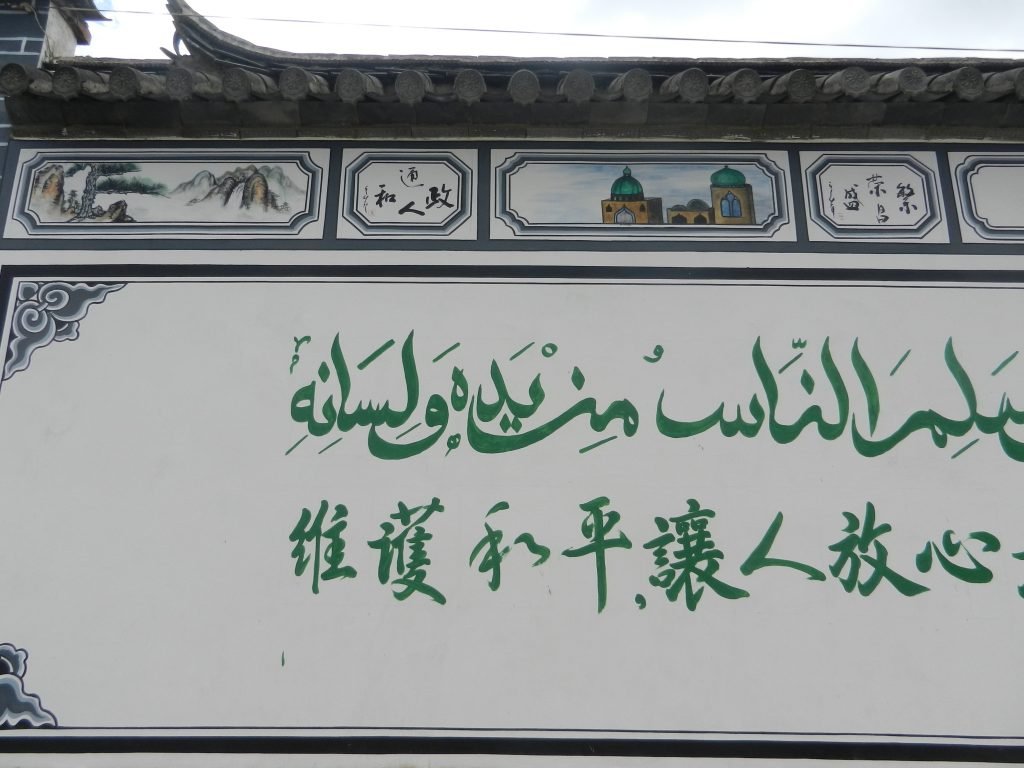 政通人和
繁荣昌盛
سَلِمَ النَّاسُ مِنْ يَدِهِ وَلِسَانِهِ
维護和平,讓人放心